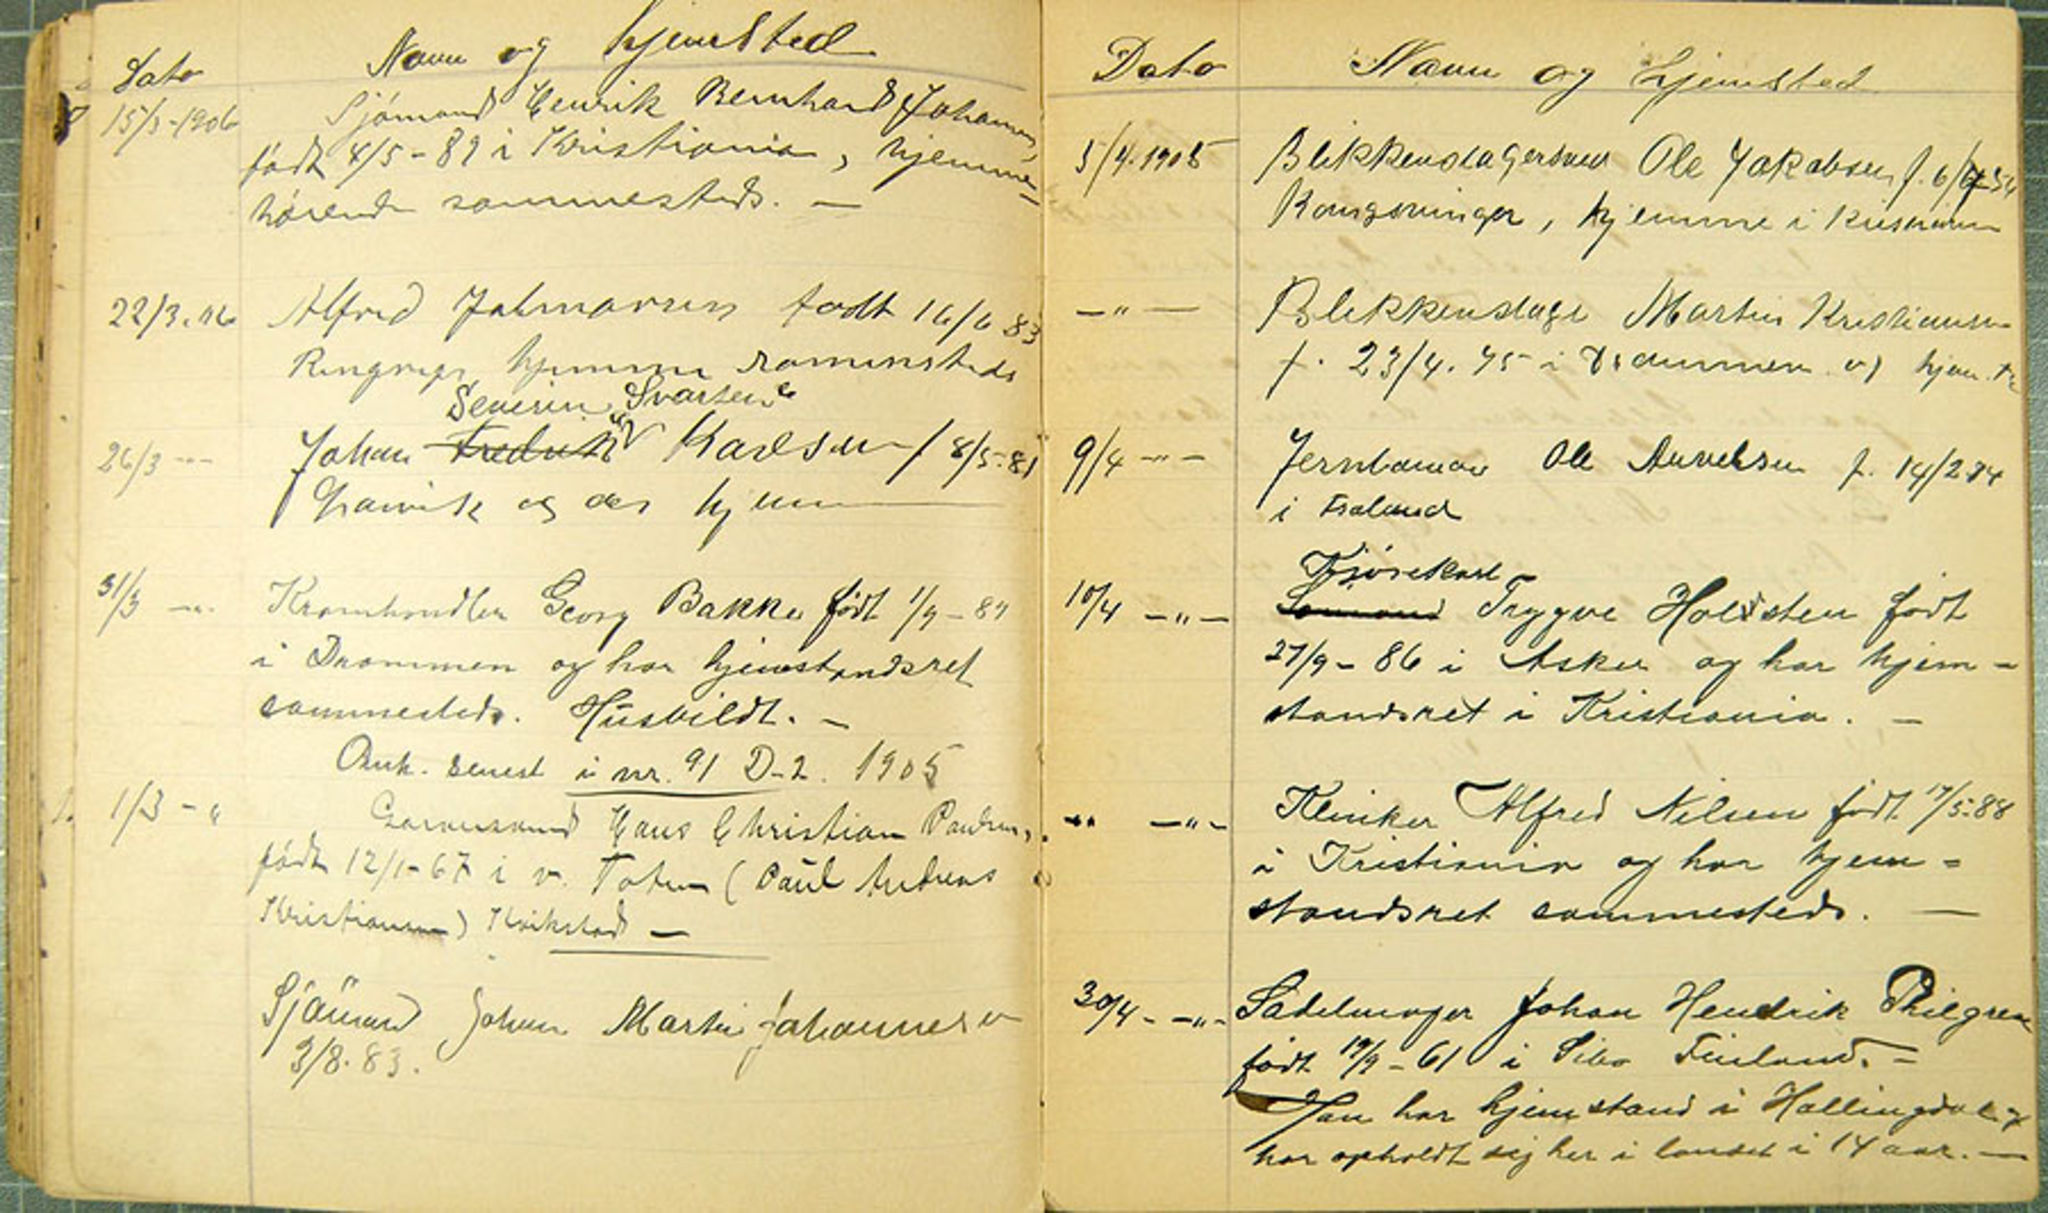 Dato Navn og hjemsted
15/3-1906 Sjömand Henrik Bernhard Johansen,
født 4/5-89 i Kristiania, hjemme-
hørende sammesteds. —
22/3. 06 Alfred Jalmarsen født 16/6 83
Ringrige hjemme sammesteds
Severin "Svarten"
26/3 -"- Johan Fredrik Karlsen f 8/5-81
og der hjemme
31/3 -"- Kramhandler Georg Bakke født 1/9-84
i Drammen og har hjemstandsret
sammesteds. Husvildt. —
Anh. senest i nr. 91 D-2. 1905
1/3 - " Garversvend Hans Christian Paulsen,
født 12/1-67 i v. Toten (Paul Andreas
Kristiansen) Kvikstad —
Sjömand Johan Martin Johannesen
3/8.83.
Dato Navn og hjemsted
5/4.1906 Blikkenslagersvend Ole Jakobsen f. 6/6-54
Kongsvinger, hjemme i Kristiania
-"- Blikkenslager Martin Kristiansen
f. 23/4.75 i Drammen og hjem.
9/4 -"- Jernbanearb Ole f. 14/2 74
i
Kjørekarl
10/4 -"- Sømand Trygve Holdsten født
27/9-86 i Asker og har hjem-
standsret i Kristiania. —
-"- -"- Klinker Alfred Nilsen født 17/5-88
i Kristiania og har hjem=
standsret sammesteds. —
30/4 - -"- Sadelmager Johan Hendrik Philgren
født 19/9-61 i Sibo Finland. —
Han har hjemstand i Hallingdal og
har opholdt sig her i landet i 14 aar. —